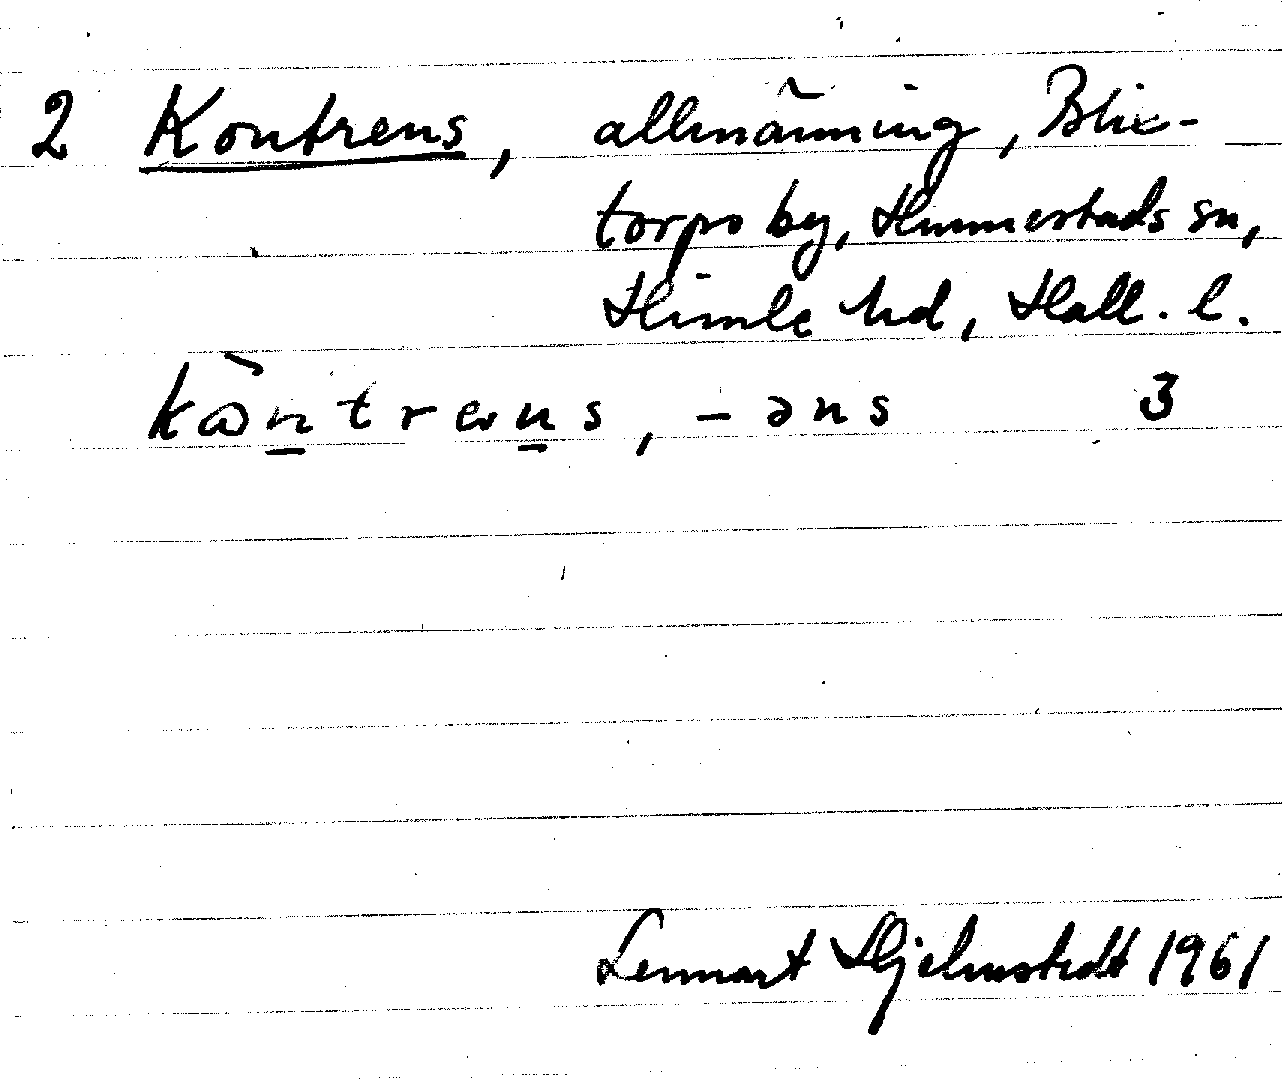 2 Kontrens, allmänning, Blix-
torps by, Hunnestads sn,
Himle hd, Hall. l.
kòntrens, -əns 3
Lennart Hjelmstedt 1961